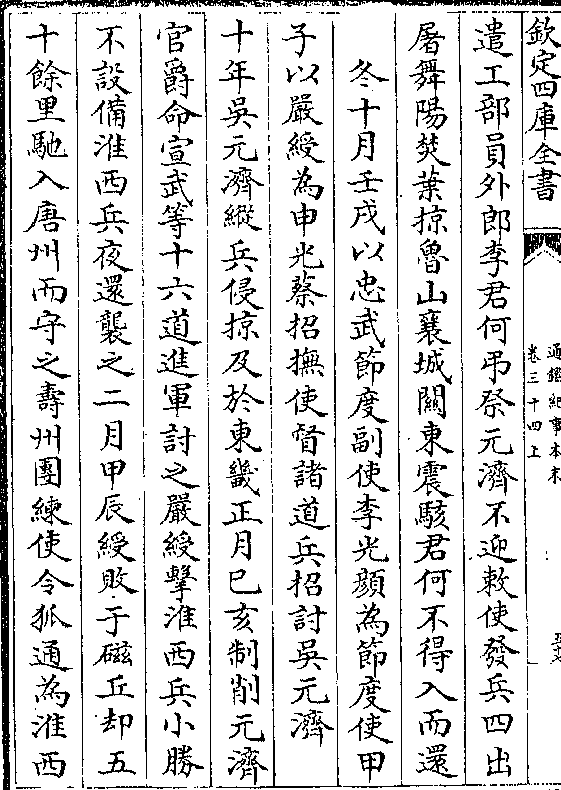 欽定四庫全書
通鑑紀事本末
卷三十四上
遣工部員外郎李君何弔祭元濟不迎敕使發兵四出
屠舞陽焚葉掠魯山襄城關東震駭君何不得入而還
冬十月壬戌以忠武節度副使李光顔為節度使甲
子以嚴綬為申光蔡招撫使督諸道兵招討吳元濟
十年吳元濟縱兵侵掠及於東畿正月己亥制削元濟
官爵命宣武等十六道進軍討之嚴綬擊淮西兵小勝
不設備淮西兵夜還襲之二月甲辰綬敗于磁丘却五
十餘里馳入唐州而守之壽州團練使令狐通為淮西